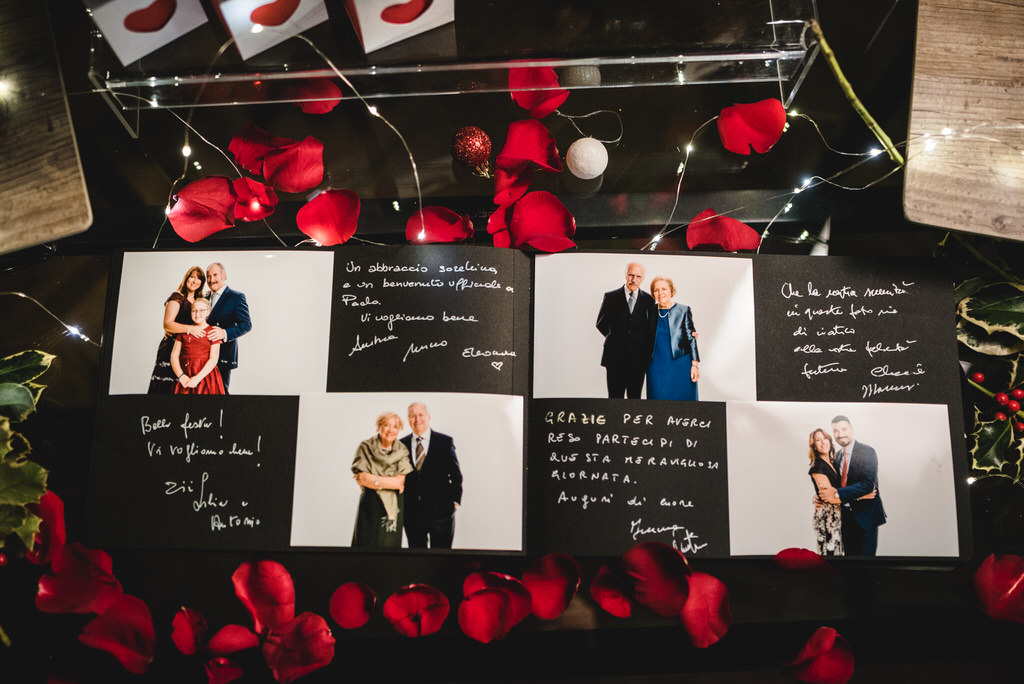 Un abbraccio
e un benvenuto ufficiale a
Paolo.
Vi vogliamo bene
Andrea Marco Eleonora
Bella festa!
Vi vogliamo bene!
Zii Lidia e
Antonio
Che la vostra serenità
in queste foto sia
di viatico
alla vostra felicità
futura
GRAZIE PER AVERCI
RESO PARTECIPI DI
QUESTA MERAVIGLIOSA
GIORNATA.
Auguri di cuore